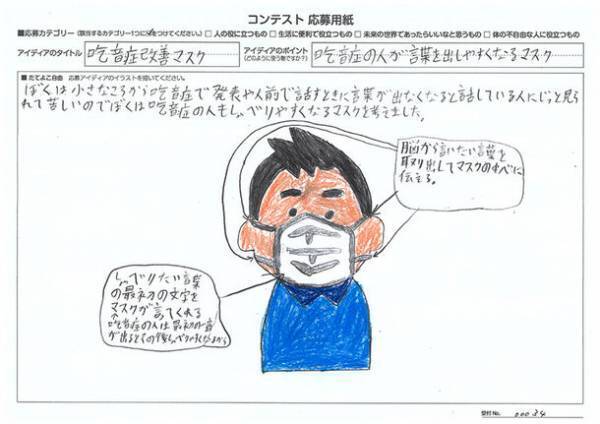 コンテスト 応募用紙
■応募カテゴリー(該当するカテゴリー1つに✓をつけてください。) □人の役に立つもの □生活に便利で役立つもの □未来の世界であったらいいなと思うもの □体の不自由な人に役立つもの
アイディアのタイトル 吃音症改善マスク アイディアのポイント (どのように使う物ですか?) 吃音症の人が言葉を出しやすくなるマスク
■たてよこ自由 応募アイディアのイラストを描いてください。
ぼくは小さなころから吃音症で発表や人前で話すときに言葉が出なくなると話している人にじっと見ら
れて苦しいのでぼくは吃音症の人もしゃべりやすくなるマスクを考え出しました。
脳から言いたい言葉を
取り出してマスクのすべに
伝える。
しゃべりたい言葉
の最初の文字を
マスクが言ってくれる
吃音症の人は最初の音
が出るとその後しゃべりやすくなるから
受付No. 00034